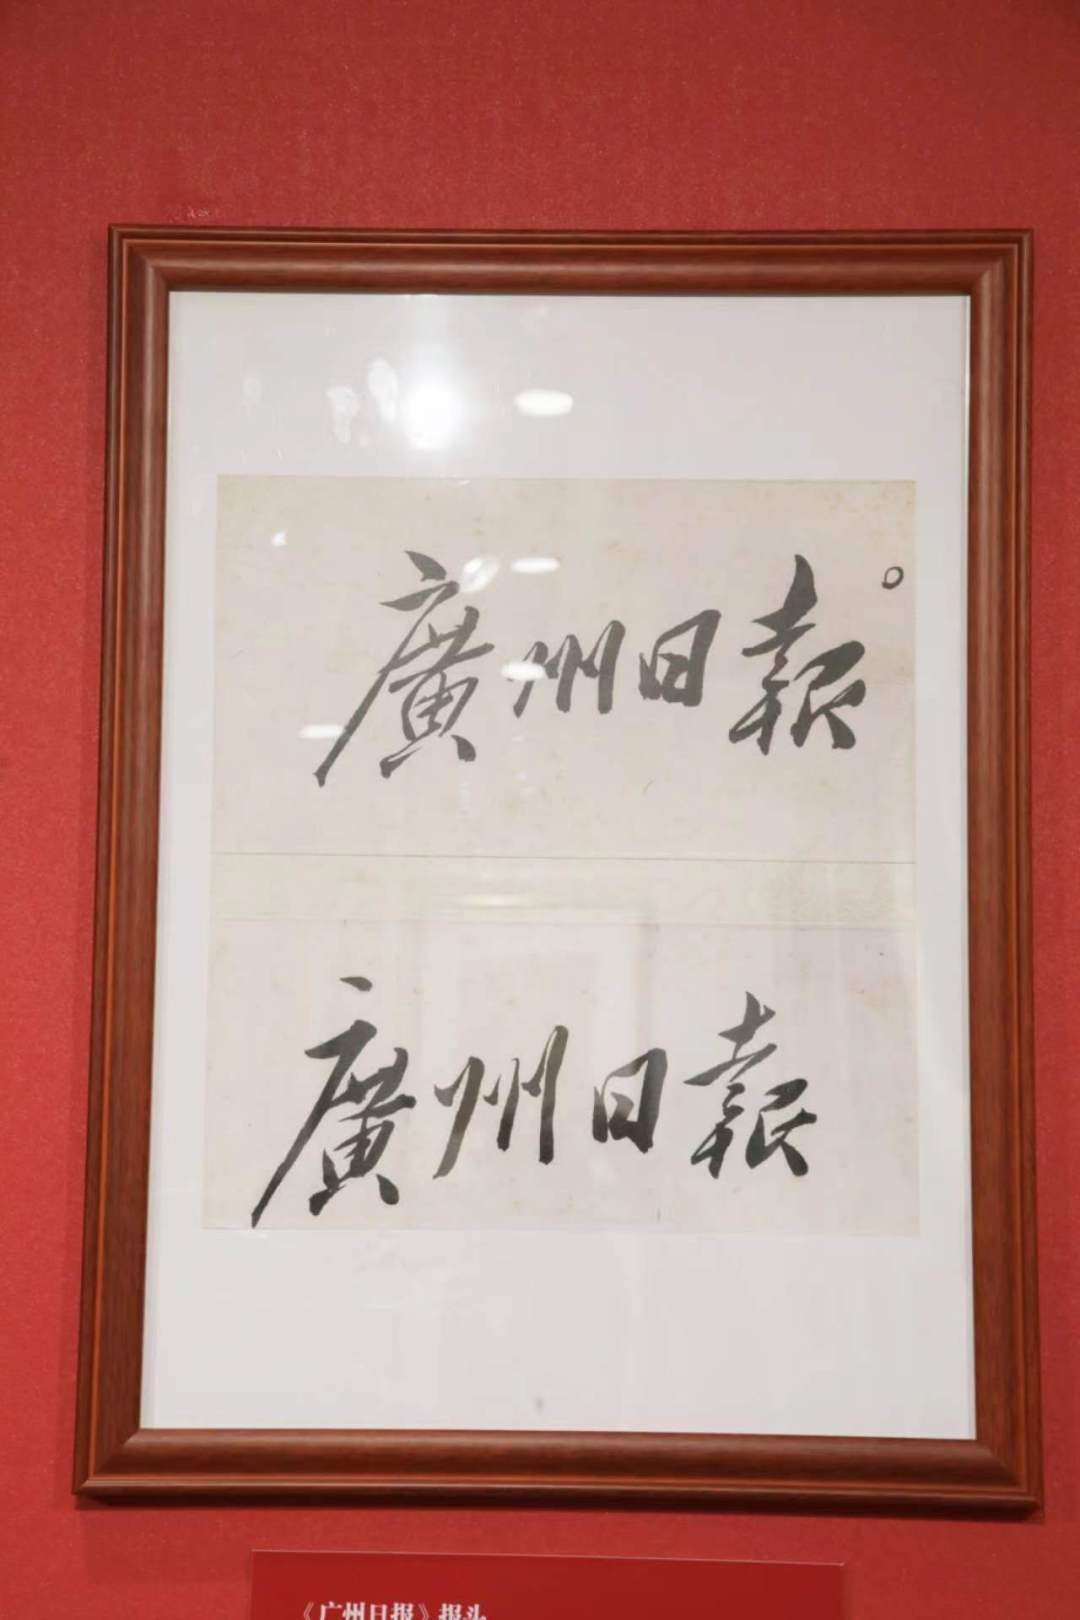 廣州日報
廣州日報
《广州日报》报头